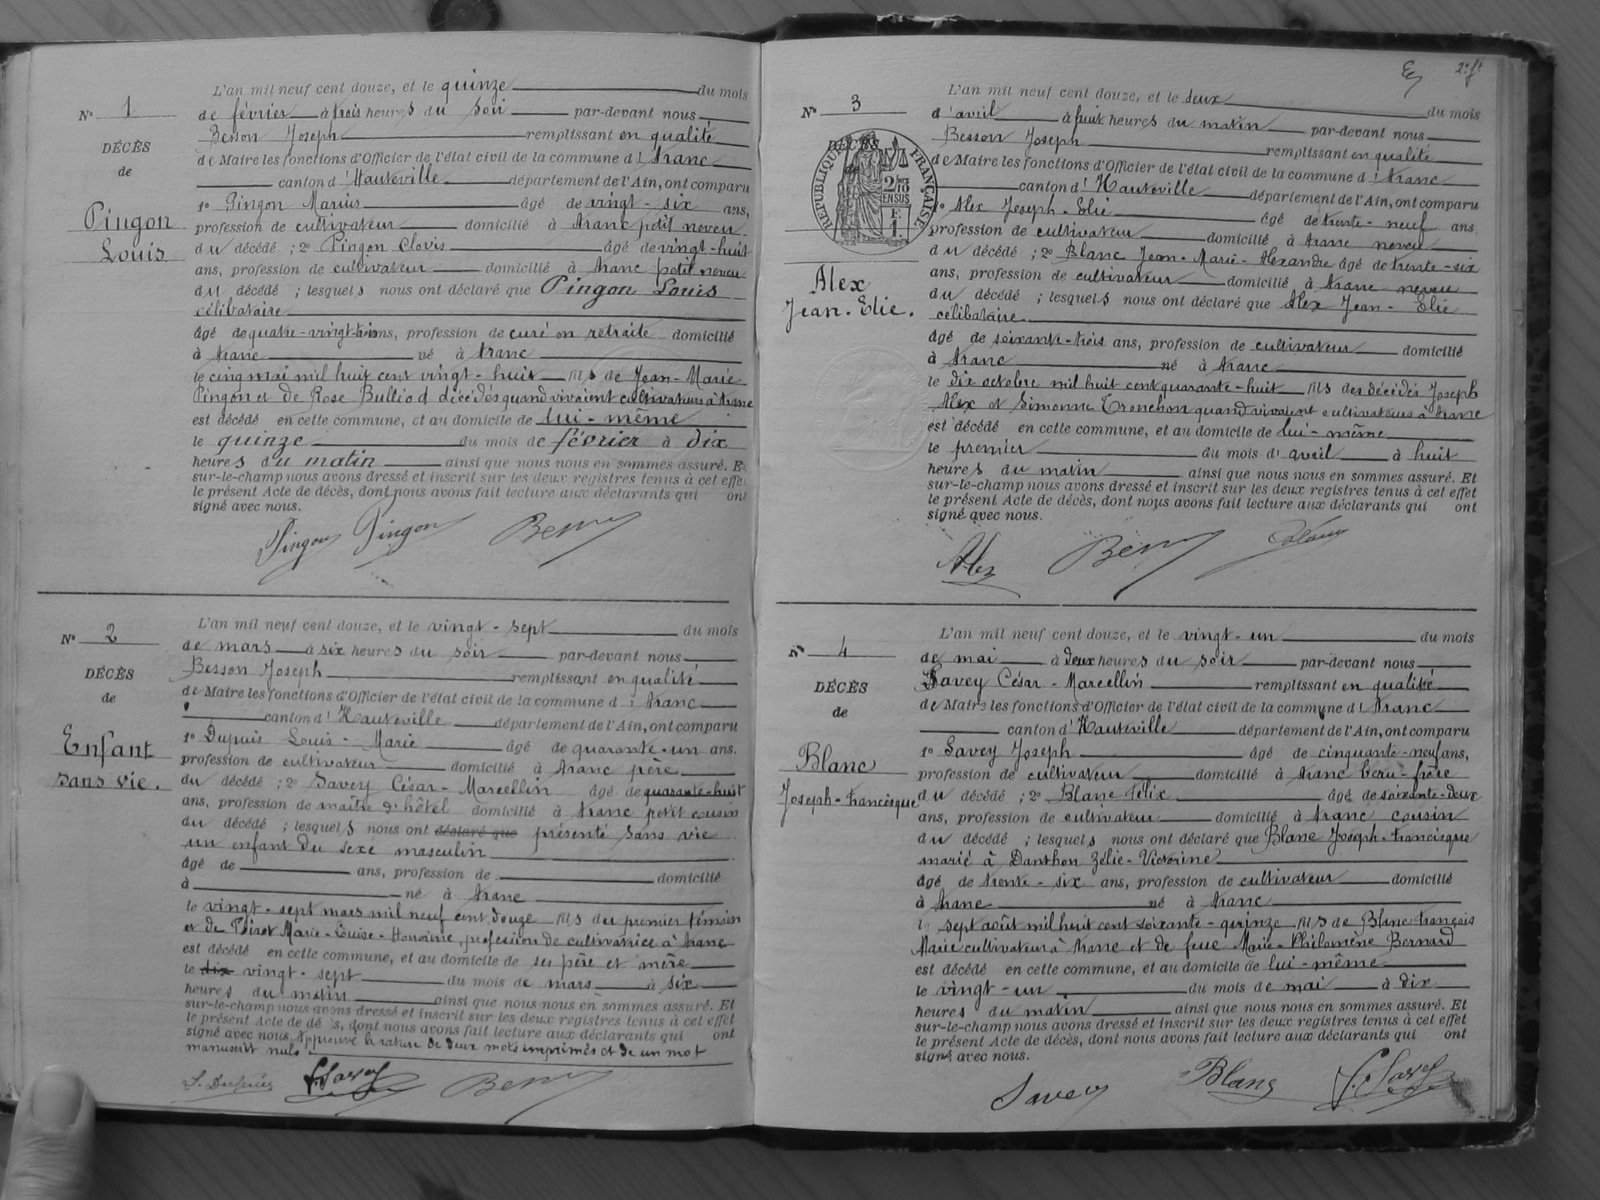 N° 1
DÉCÈS
de
Pingon
Louis
L'an mil neuf cent douze, et le quinze du mois
de février à trois heures du soir par-devant nous
Besson Joseph remplissant en qualité
de Maire les fonctions d'Officier de l'état civil de la commune d'Aranc
canton d'Hauteville département de l'Ain, ont comparu
1° Pingon Marius âgé de vingt-six ans,
profession de cultivateur domicilié à Aranc petit neveu
du décédé ; 2° Pingon Clovis âgé de vingt-huit
ans, profession de cultivateur domicilié à Aranc petit neveu
du décédé ; lesquels nous ont déclaré que Pingon Louis
célibataire
âgé de quatre-vingt-trois ans, profession de curé en retraite domicilié
à Aranc né à Aranc
le cinq mai mil huit cent vingt-huit fils de Jean-Marie
Pingon et de Rose Bulliod décédés quand vivaient cultivateurs à Aranc
est décédé en cette commune, et au domicile de lui-même
le quinze du mois de février à dix
heures du matin ainsi que nous nous en sommes assuré. Et
sur-le-champ nous avons dressé et inscrit sur les deux registres tenus à cet effet
le présent Acte de décès, dont nous avons fait lecture aux déclarants qui ont
signé avec nous.
Pingon Pingon Besson
N° 2
DÉCÈS
de
Enfant
sans vie.
L'an mil neuf cent douze, et le vingt-sept du mois
de mars à six heures du soir par-devant nous
Besson Joseph remplissant en qualité
de Maire les fonctions d'Officier de l'état civil de la commune d'Aranc
canton d'Hauteville département de l'Ain, ont comparu
1° Dupuis Louis-Marie âgé de quarante-un ans.
profession de cultivateur domicilié à Aranc père
du décédé ; 2° Savey César-Marcellin âgé de quarante-huit
ans, profession de maître d'hôtel domicilié à Aranc petit cousin
du décédé ; lesquels nous ont déclaré que présenté sans vie
un enfant du sexe masculin
âgé de ans, profession de domicilié
à né à Aranc
le vingt-sept mars mil neuf cent douze fils du premier témoin
et de Marie-Louise-Honorine, profession de cultivatrice à Aranc
est décédé en cette commune, et au domicile de ses père et mère
le dix vingt-sept du mois de mars à six
heures du matin ainsi que nous nous en sommes assuré. Et
sur-le-champ nous avons dressé et inscrit sur les deux registres tenus à cet effet
le présent Acte de décès, dont nous avons fait lecture aux déclarants qui ont
signé avec nous. Approuvé la rature de deux mots imprimés et de un mot
manuscrit nuls.
L. Dupuis C. Savey Besson
2e ft
N° 3
DÉCÈS
RÉPUBLIQUE FRANÇAISE
2/10
EN SUS
F.
1.
Alex
Jean-Elie.
L'an mil neuf cent douze, et le deux du mois
d'avril à huit heures du matin par-devant nous
Besson Joseph remplissant en qualité
de Maire les fonctions d'Officier de l'état civil de la commune d'Aranc
canton d'Hauteville département de l'Ain, ont comparu
1° Alex Joseph-Elie âgé de trente-neuf ans,
profession de cultivateur domicilié à Aranc neveu
du décédé ; 2° Blanc Jean-Marie-Alexandre âgé de trente-six
ans, profession de cultivateur domicilié à Aranc neveu
du décédé ; lesquels nous ont déclaré que Alex Jean-Elie
célibataire
âgé de soixante-trois ans, profession de cultivateur domicilié
à Aranc né à Aranc
le dix octobre mil huit cent quarante-huit fils des décédés Joseph
Alex et Simonne Tronchon quand vivaient cultivateurs à Aranc
est décédé en cette commune, et au domicile de lui-même
le premier du mois d'avril à huit
heures du matin ainsi que nous nous en sommes assuré. Et
sur-le-champ nous avons dressé et inscrit sur les deux registres tenus à cet effet
le présent Acte de décès, dont nous avons fait lecture aux déclarants qui ont
signé avec nous.
Alex Besson Blanc
N° 4
DÉCÈS
de
Blanc
Joseph-Francisque
L'an mil neuf cent douze, et le vingt-un du mois
de mai à deux heures du soir par-devant nous
Savey César-Marcellin remplissant en qualité
de Maire les fonctions d'Officier de l'état civil de la commune d'Aranc
canton d'Hauteville département de l'Ain, ont comparu
1° Savey Joseph âgé de cinquante-neuf ans,
profession de cultivateur domicilié à Aranc beau-frère
du décédé ; 2° Blanc Félix âgé de soixante-deux
ans, profession de cultivateur domicilié à Aranc cousin
du décédé ; lesquels nous ont déclaré que Blanc Joseph-Francisque
marié à Danthon Zélie-Victorine
âgé de trente-six ans, profession de cultivateur domicilié
à Aranc né à Aranc
le sept août mil huit cent soixante-quinze fils de Blanc François
Marie cultivateur à Aranc et de feue Marie-Philomène Bernard
est décédé en cette commune, et au domicile de lui-même
le vingt-un du mois de mai à dix
heures du matin ainsi que nous nous en sommes assuré. Et
sur-le-champ nous avons dressé et inscrit sur les deux registres tenus à cet effet
le présent Acte de décès, dont nous avons fait lecture aux déclarants qui ont
signé avec nous.
Savey Blanc C. Savey